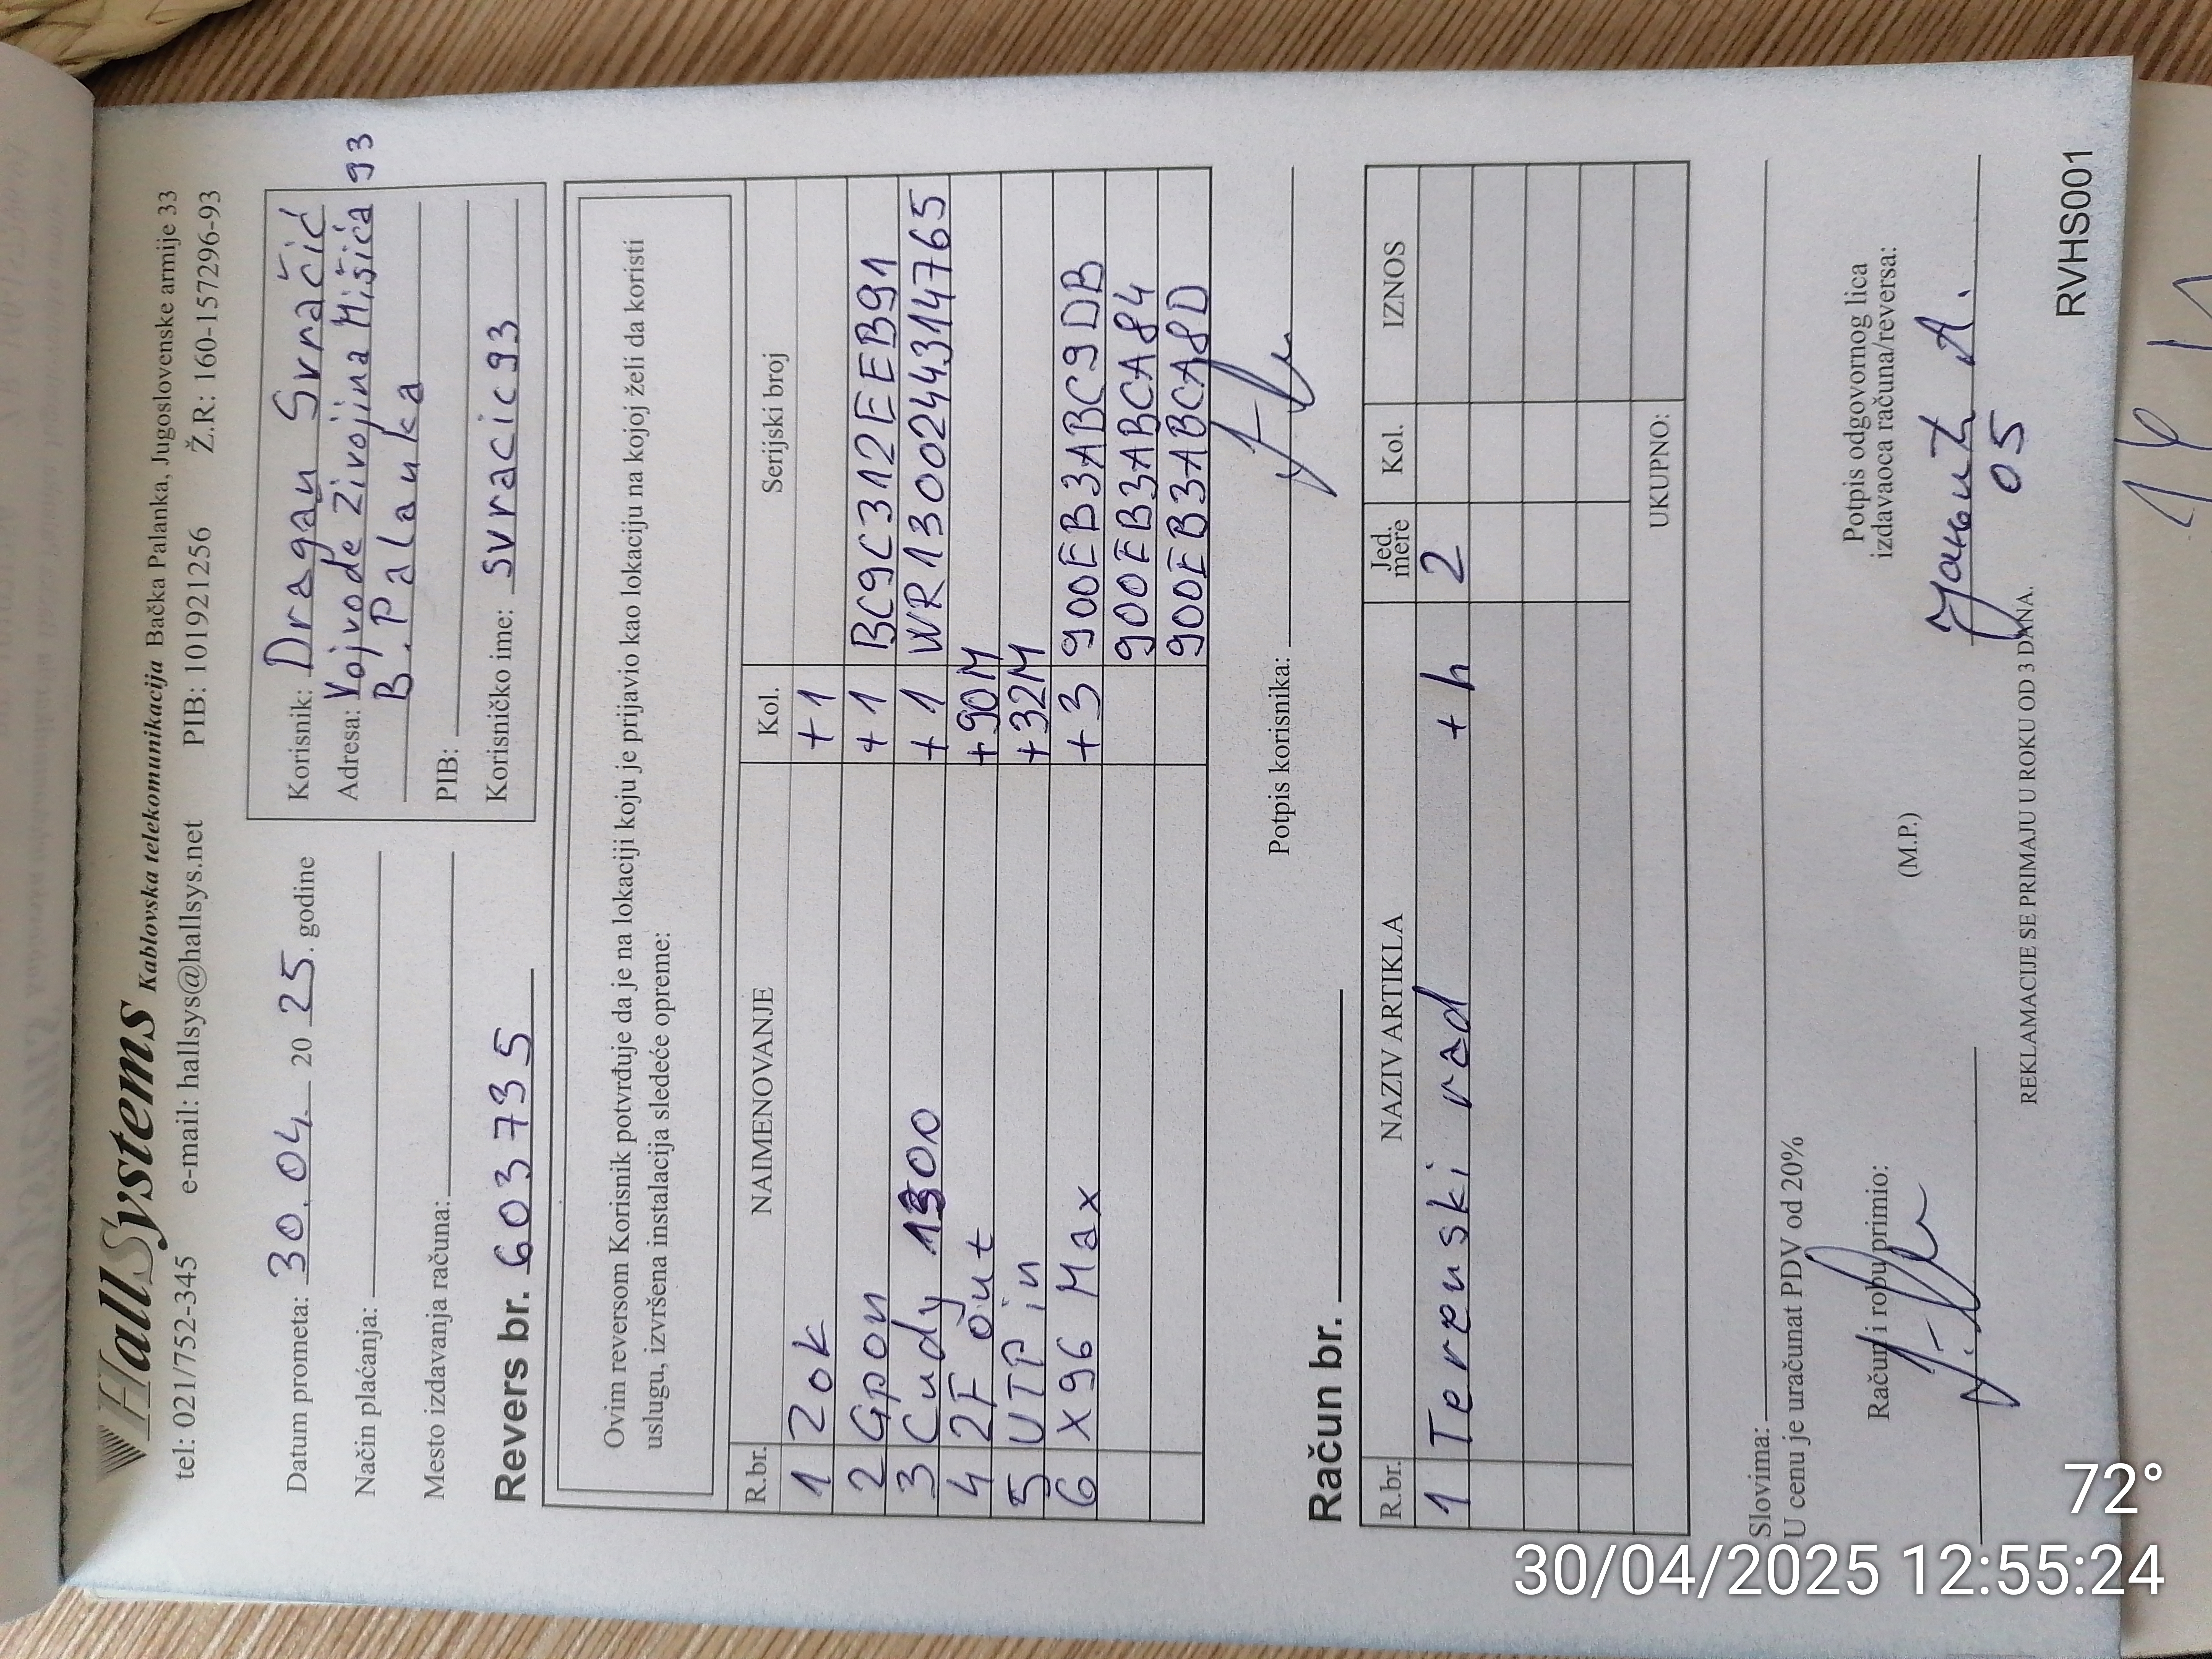 HallSystems Kablovska telekomunikacija Bačka Palanka, Jugoslovenske armije 33
tel: 021/752-345 e-mail: hallsys@hallsys.net PIB: 101921256 Ž.R: 160-157296-93
Datum prometa: 30.04. 20 25. godine
Način plaćanja:
Mesto izdavanja računa:
Revers br. 603735
Korisnik: Dragan Svračić
Adresa: Vojvode Živojina Mišića 93
B. Palanka
PIB:
Korisničko ime: svracic93
Ovim reversom Korisnik potvrđuje da je na lokaciji koju je prijavio kao lokaciju na kojoj želi da koristi
uslugu, izvršena instalacija sledeće opreme:
R.br. NAIMENOVANJE Kol. Serijski broj
1 Zok +1
2 Gpon +1 BC9C312EEB91
3 Cudy 1300 +1 WR1300244314765
4 2F out +90M
5 UTP in +32M
6 X96 Max +3 900EB3ABC9DB
900EB3ABCA84
900EB3ABCA8D
Potpis korisnika:
Račun br.
R.br. NAZIV ARTIKLA Jed. mere Kol. IZNOS
1 Terenski rad +h 2
UKUPNO:
Slovima:
U cenu je uračunat PDV od 20%
Račun i robu primio:
(M.P.)
Potpis odgovornog lica
izdavaoca računa/reversa:
05
REKLAMACIJE SE PRIMAJU U ROKU OD 3 DANA.
RVHS001
72°
30/04/2025 12:55:24